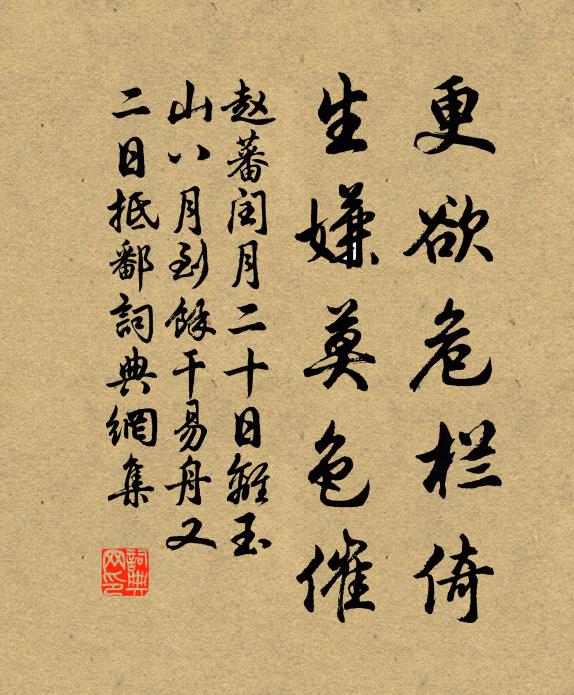 更欲危栏倚
生嫌莫色催
赵蕃闰月二十日離玉
山八月到餘干易舟又
二日抵鄱詞典網集
詞典
网印